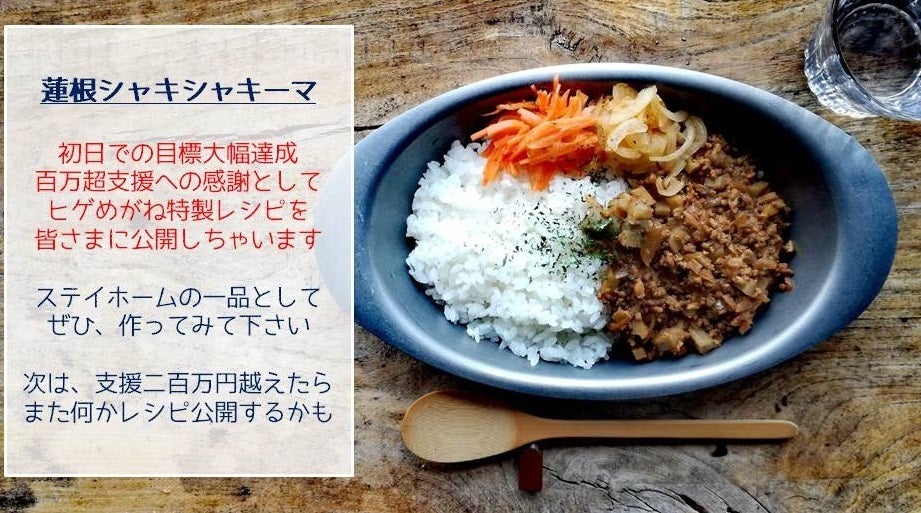 蓮根シャキシャキーマ
初日での目標大幅達成
百万超支援への感謝として
ヒゲめがね特製レシピを
皆さまに公開しちゃいます
ステイホームの一品として
ぜひ、作ってみて下さい
次は、支援二百万円越えたら
また何かレシピ公開するかも